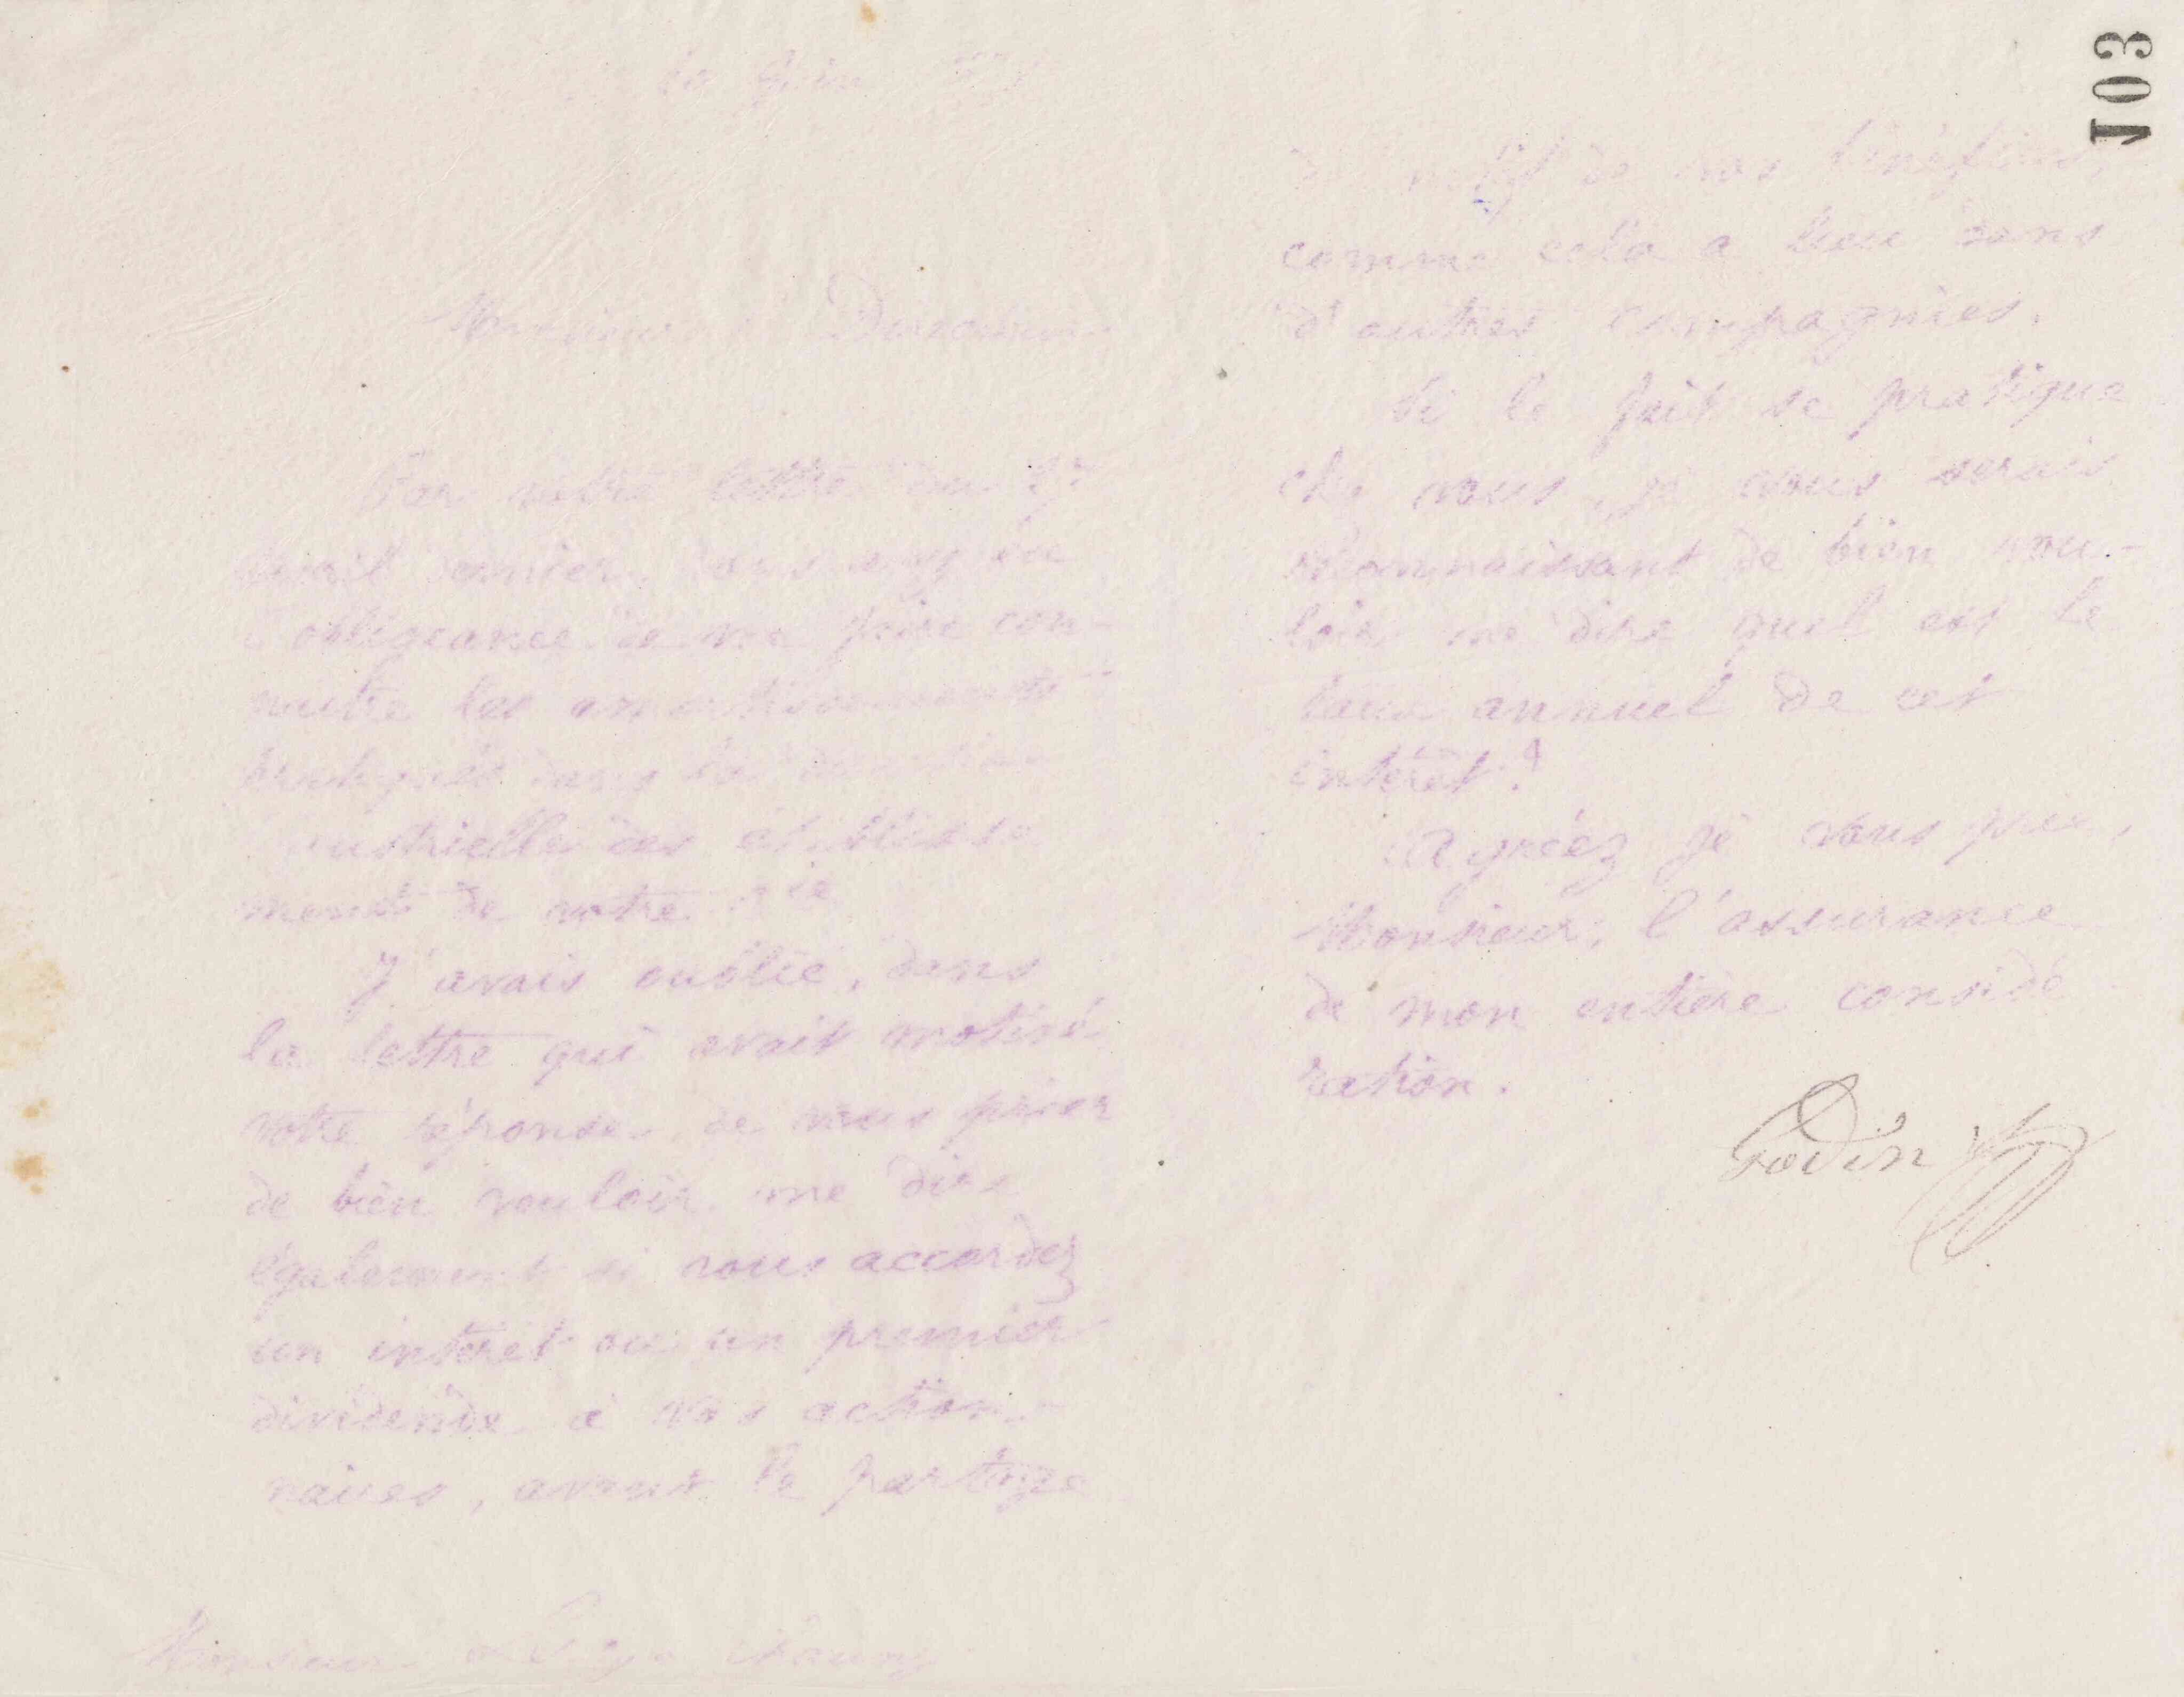 103
Juin
Monsieur
Par votre lettre du
avril dernier, vous avez eu
l'obligeance de me faire con-
naître les amortissements
dans la
industrielle des établisse
ments de votre Cie
J'avais oublié, dans
la lettre qui avait motivé
votre réponse, de vous prier
de bien vouloir me dire
également si vous accordez
un intérêt ou un premier
dividende à vos action-
naires, avant le partage
Monsieur
de vos bénéfices,
comme cela a lieu dans
d'autres compagnies.
Si le fait se pratique
chez vous, je vous serais
reconnaissant de bien vou-
loir me dire quel est le
taux annuel de cet
intérêt?
Agréez je vous prie,
Monsieur, l'assurance
de mon entière considé
ration.
Godin